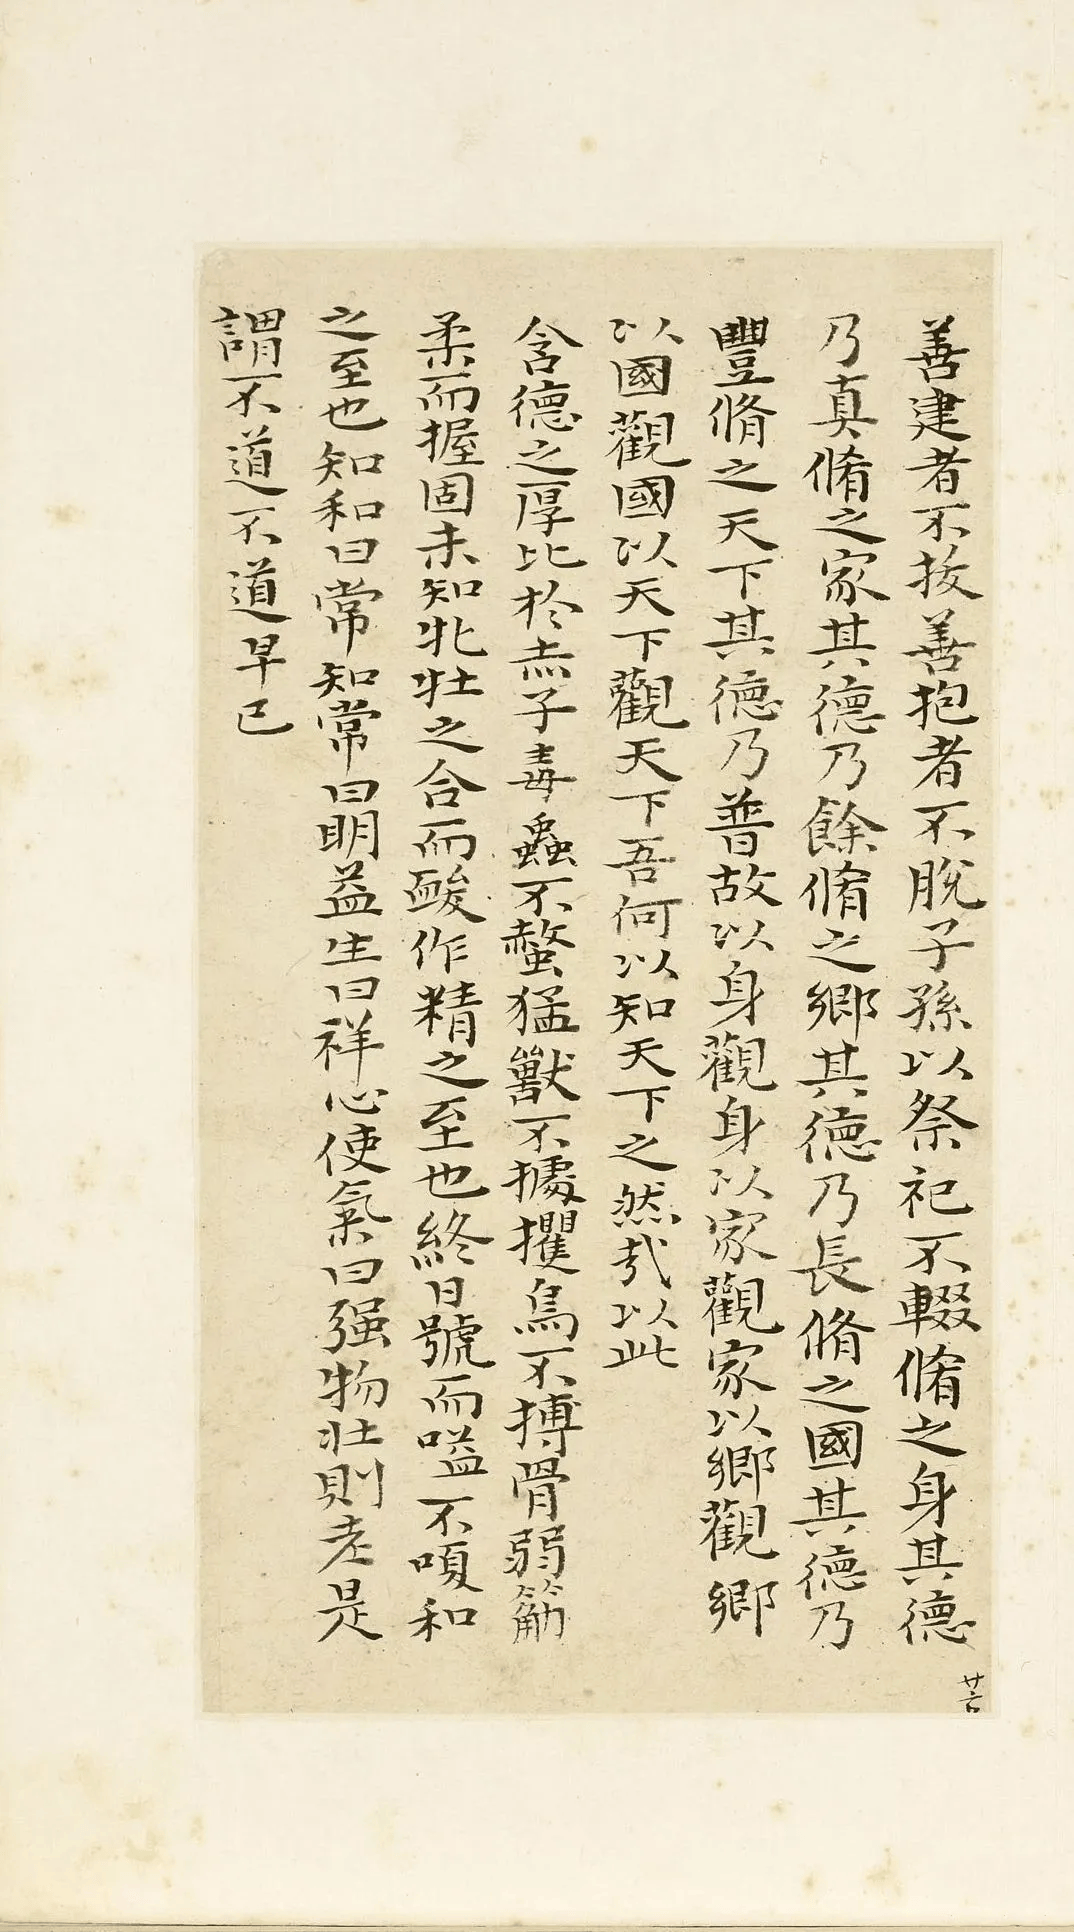 善建者不拔善抱者不脫子孫以祭祀不輟脩之身其德
乃真脩之家其德乃餘脩之鄉其德乃長脩之國其德乃
豐脩之天下其德乃普故以身觀身以家觀家以鄉觀鄉
以國觀國以天下觀天下吾何以知天下之然哉以此
含德之厚比於赤子毒蟲不螫猛獸不據攫鳥不搏骨弱筋
柔而握固未知牝牡之合而酸作精之至也終日號而嗌不嗄和
之至也知和曰常知常曰明益生曰祥心使氣曰强物壯則老是
謂不道不道早已